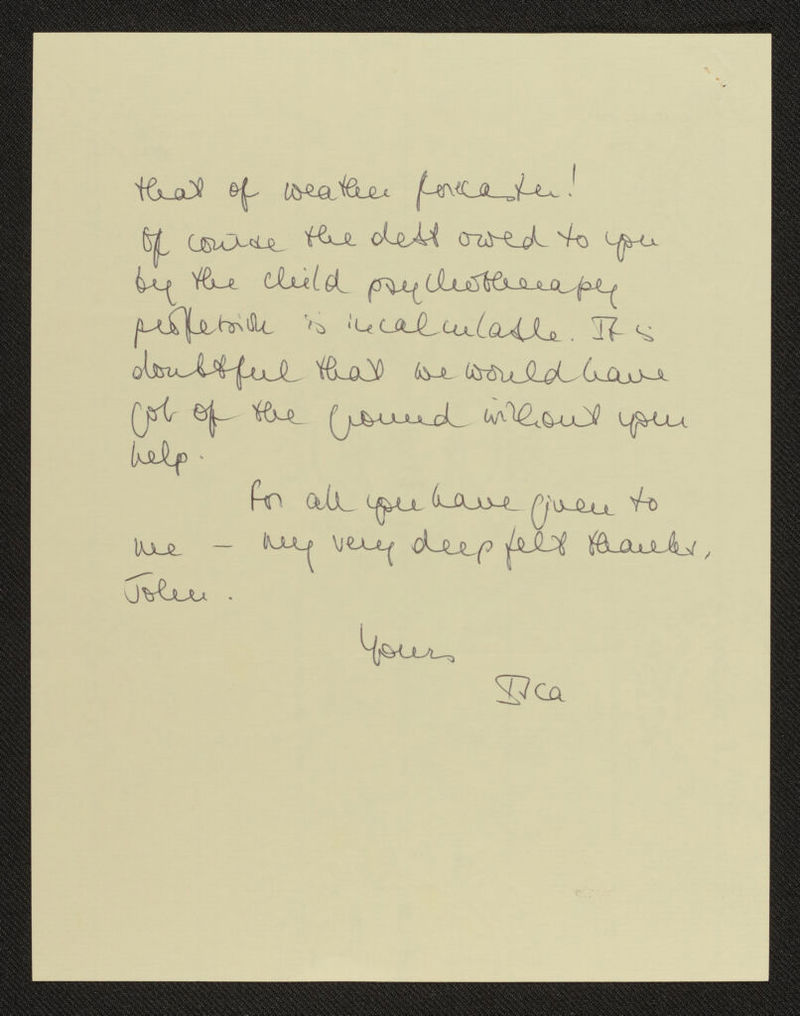 that of weather forecaster!
Of course the debt owed to you
by the child psychotherapy
profession is incalculable. It is
doubtful that we would have
got of the ground without your
help.
For all you have given to
me - my very deep felt thanks,
John.
Yours